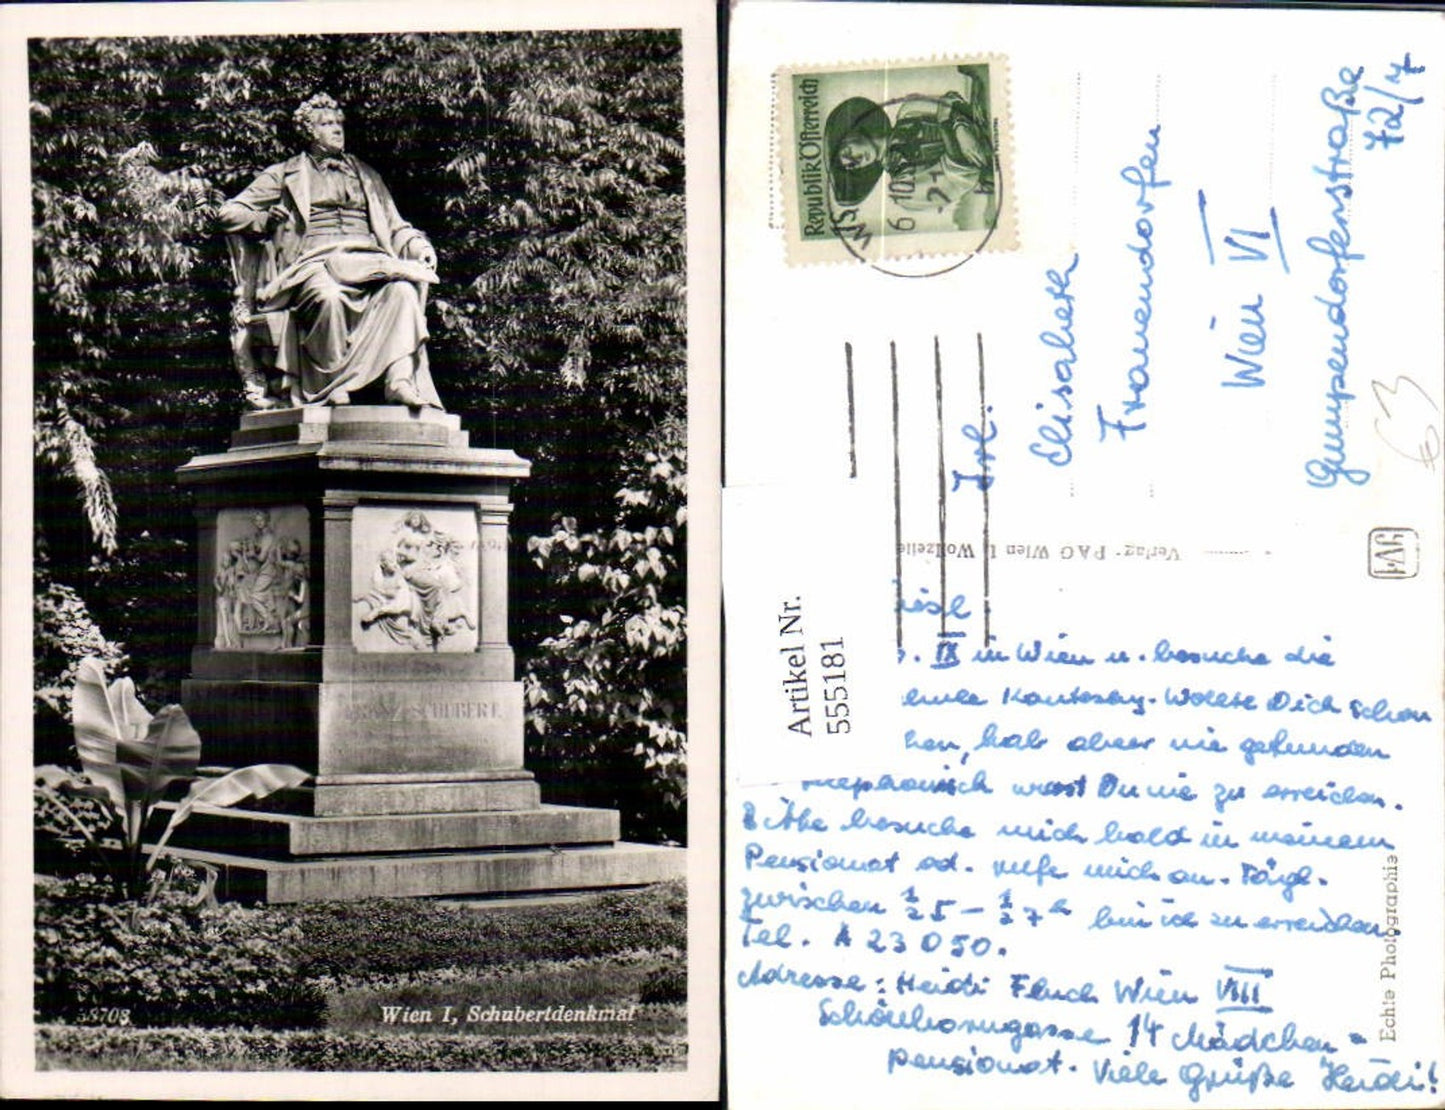 FRANZ SCHUBERT
38708
Wien I, Schubertdenkmal
Republik Österreich
WI
6 10
-7-1
Frl.
Elisabeth
Frauendorfer
Wien VI
Gumpendorferstraße
72/7
63
Verlag: PAG Wien I, Wollzeile
PAG
Artikel Nr.
555181
IX in Wien u. besuche die
Wollte Dich schon
hab aber nie gefunden
warst Du nie zu erreichen.
Bitte besuche mich bald in meinem
Pensionat od. rufe mich an. Tägl.
zwischen ½5 – ½7h bin ich zu erreichen.
Tel. A 23 0 50.
Adresse: Heidi Fluch Wien VIII
Schönborngasse 14 Mädchen =
pensionat. Viele Grüße Heidi!
Echte Photographie